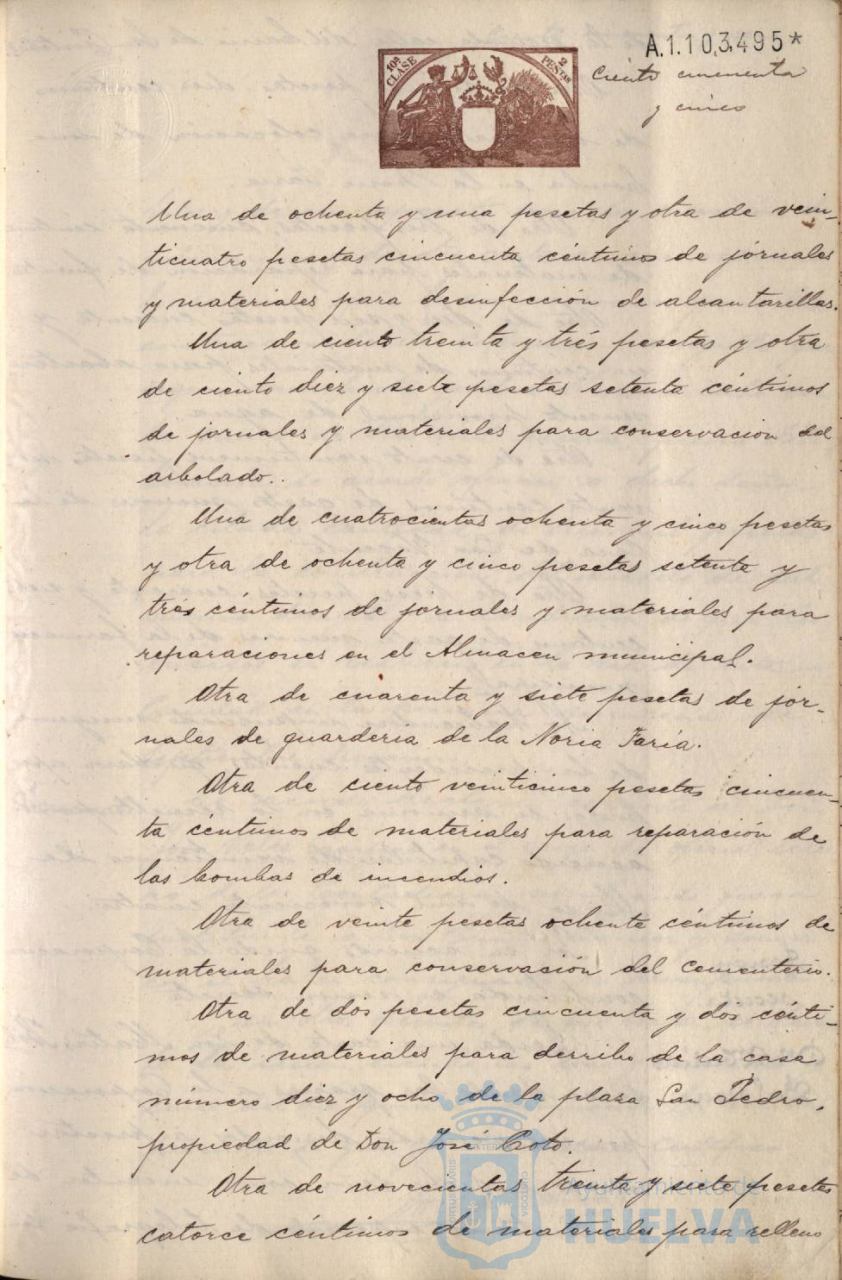 A.1.103.495*
10ª CLASE
2 PESTAS
Ciento cincuenta
y cinco
Una de ochenta y una pesetas y otra de vein-
ticuatro pesetas cincuenta céntimos de jornales
y materiales para desinfección de alcantarillas.
Una de ciento treinta y trés pesetas y otra
de ciento diez y siete pesetas setenta céntimos
de jornales y materiales para conservacion del
arbolado..
Una de cuatrocientas ochenta y cinco pesetas
y otra de ochenta y cinco pesetas setenta y
tres céntimos de jornales y materiales para
reparaciones en el Almacen municipal.
Otra de cuarenta y siete pesetas de jor-
nales de guarderia de la Noria Faria.
Otra de ciento veinticinco pesetas cincuen-
ta céntimos de materiales para reparación de
las bombas de incendios.
Otra de veinte pesetas ochenta céntimos de
materiales para conservación del cementerio.
Otra de dos pesetas cincuenta y dos cénti-
mos de materiales para derribo de la casa
número diez y ocho de la plaza San Pedro,
propiedad de Don José Coto.
Otra de novecientas treinta y siete pesetas
catorce céntimos de materiales para relleno
Ayuntamiento de
HUELVA